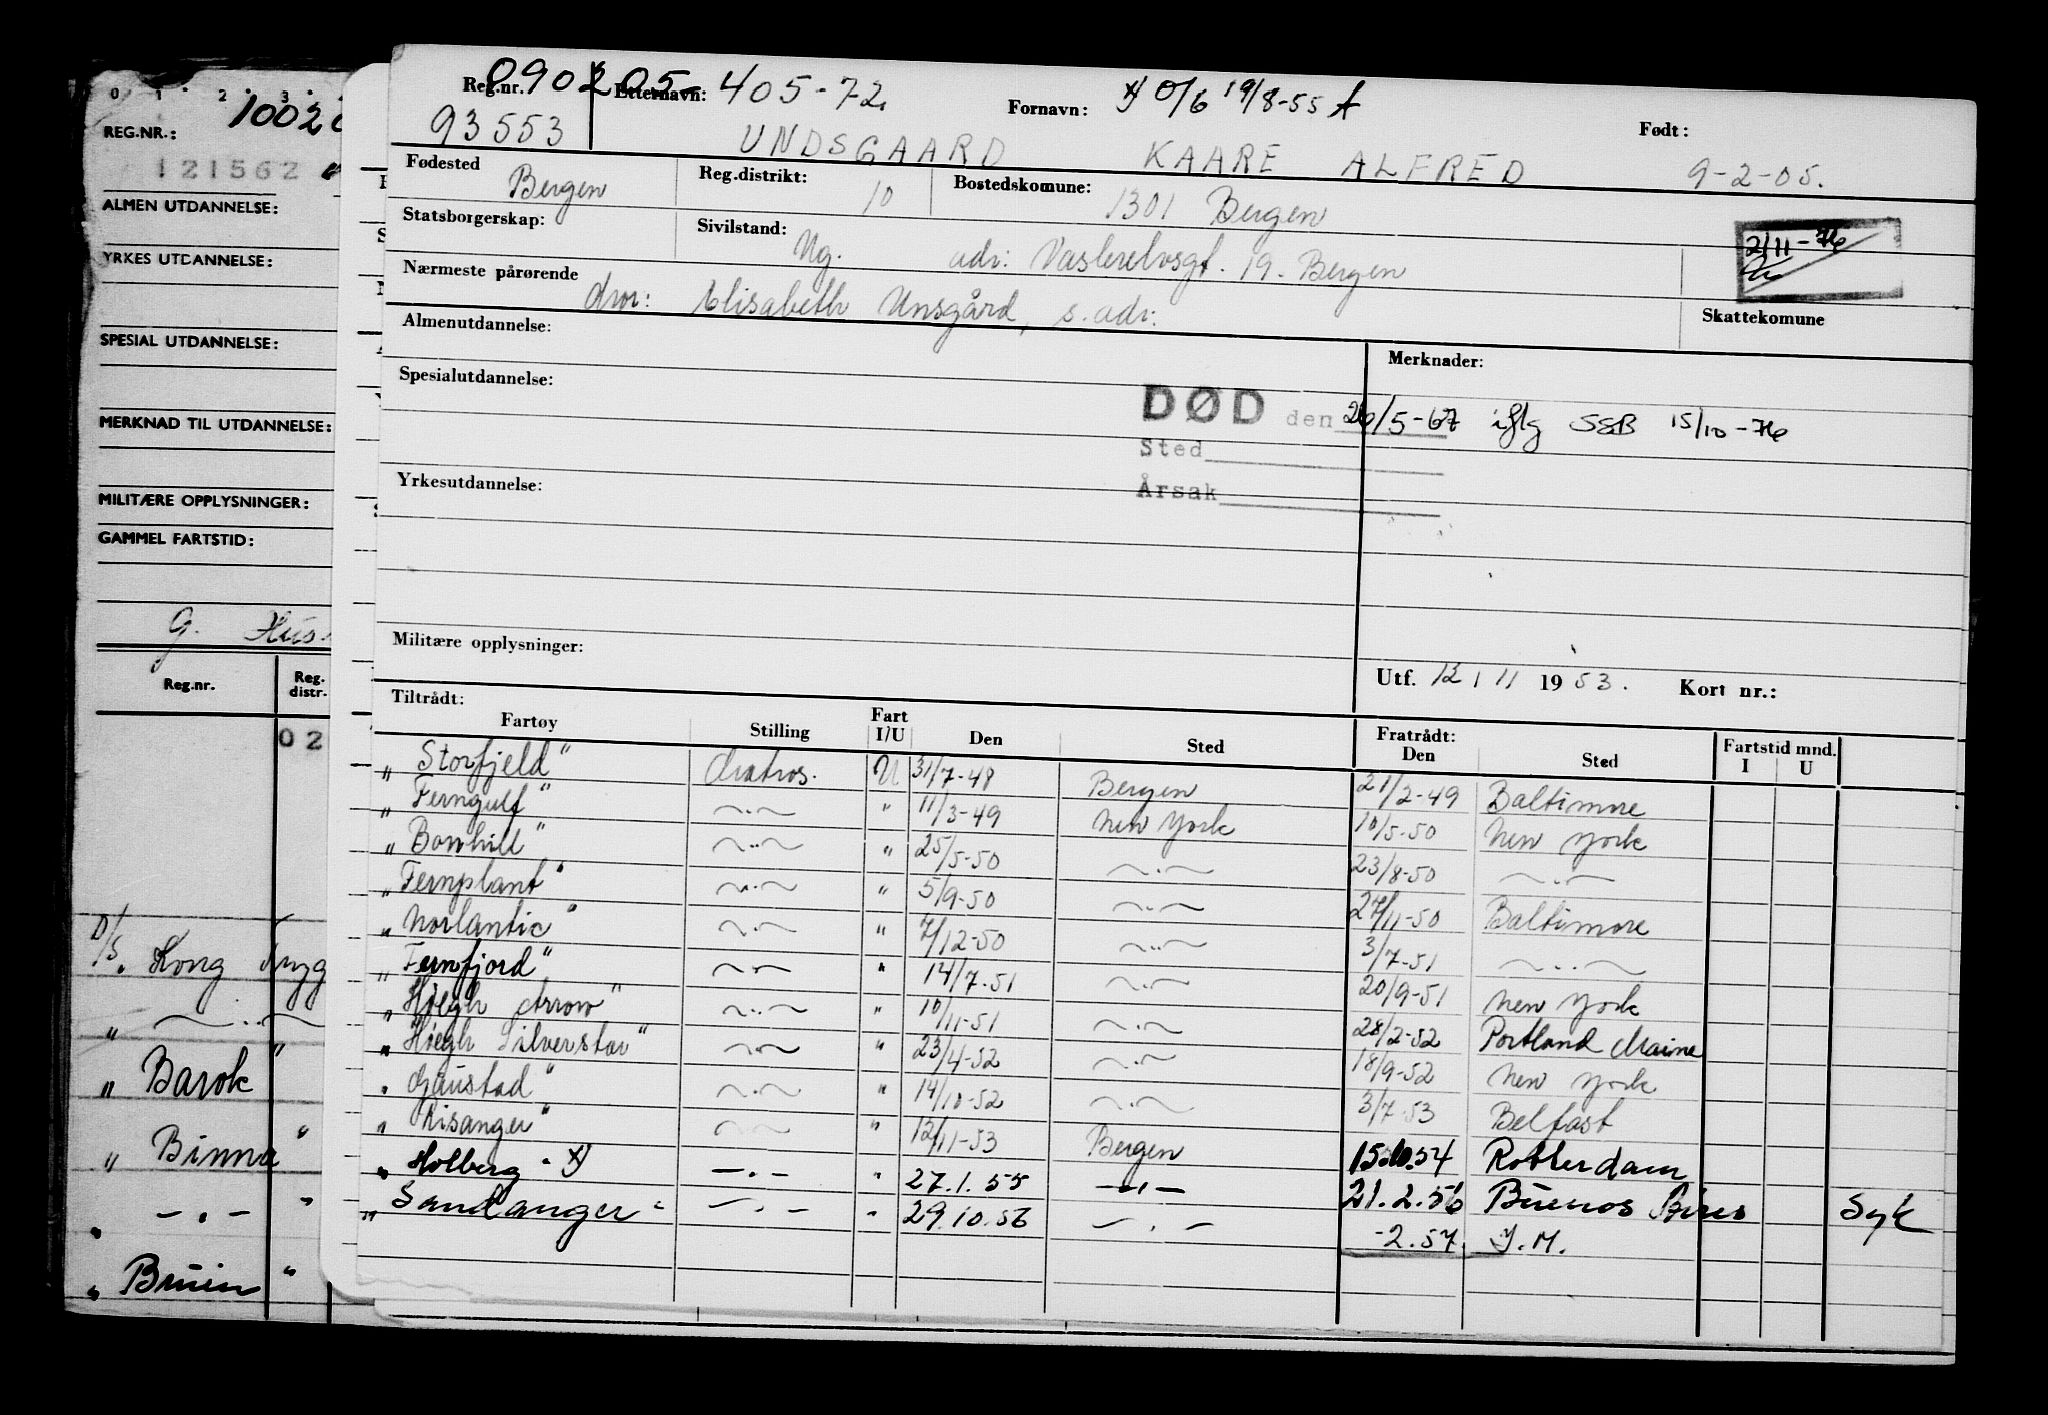 0 1 2 3
10020
REG.NR.:
121562
ALMEN UTDANNELSE:
YRKES UTDANNELSE:
SPESIAL UTDANNELSE:
MERKNAD TIL UTDANNELSE:
MILITÆRE OPPLYSNINGER:
GAMMEL FARTSTID:
G. Hus
Reg.nr. Reg. distr.
02
D/S. Kong
" —..—
" Barok "
" Binna "
" —.— "
" Bruin "
Reg.nr. 090205- Etternavn: 405-72 Fornavn: x) 0/6 19/8-55 A Født:
93553 UNDSGAARD KAARE ALFRED 9-2-05.
Fødested Bergen Reg.distrikt: 10 Bostedskomune: 1301 Bergen
Statsborgerskap: Sivilstand: Ug. adr: Vasleelvsgt. 19. Bergen
2/11-76
Nærmeste pårørende mor: Elisabeth Unsgård, s. adr.
Skattekomune
Almenutdannelse: Merknader:
Spesialutdannelse:
DØD den 26/5-67 iflg SSB 15/10-76
Sted
Årsak
Yrkesutdannelse:
Militære opplysninger:
Utf. 12 / 11 1953. Kort nr.:
Tiltrådt: Fratrådt: Fartstid mnd.
Fartøy Stilling Fart I/U Den Sted Den Sted I U
" Storfjeld " Matros. U 31/7-48 Bergen 21/2-49 Baltimore
" Ferngulf " —..— " 11/3-49 New York 10/5-50 New York
" Bowhill " —..— " 25/5-50 —.— 23/8-50 —..—
" Fernplant " —..— " 5/9-50 —..— 27/11-50 Baltimore
" Norlantic " —.— " 7/12-50 —..— 3/7-51 —..—
" Fernfjord " —..— " 14/7-51 —.— 20/9-51 New York
" Høegh Arrow " —..— " 10/11-51 —.— 28/2-52 Portland Maine
" Høegh Silverstar " —..— " 23/4-52 —.— 18/9-52 New York
" Gaustad " —.— " 14/10-52 —.— 3/7-53 Belfast
" Risanger " —..— " 12/11-53 Bergen 15.10.54 Rotterdam
" Holberg " x) —.— " 27.1.55 —.— 21.2.56 Buenos Aires Syk
" Sandanger " —.— " 29.10.56 —.— -2.57. I.M.